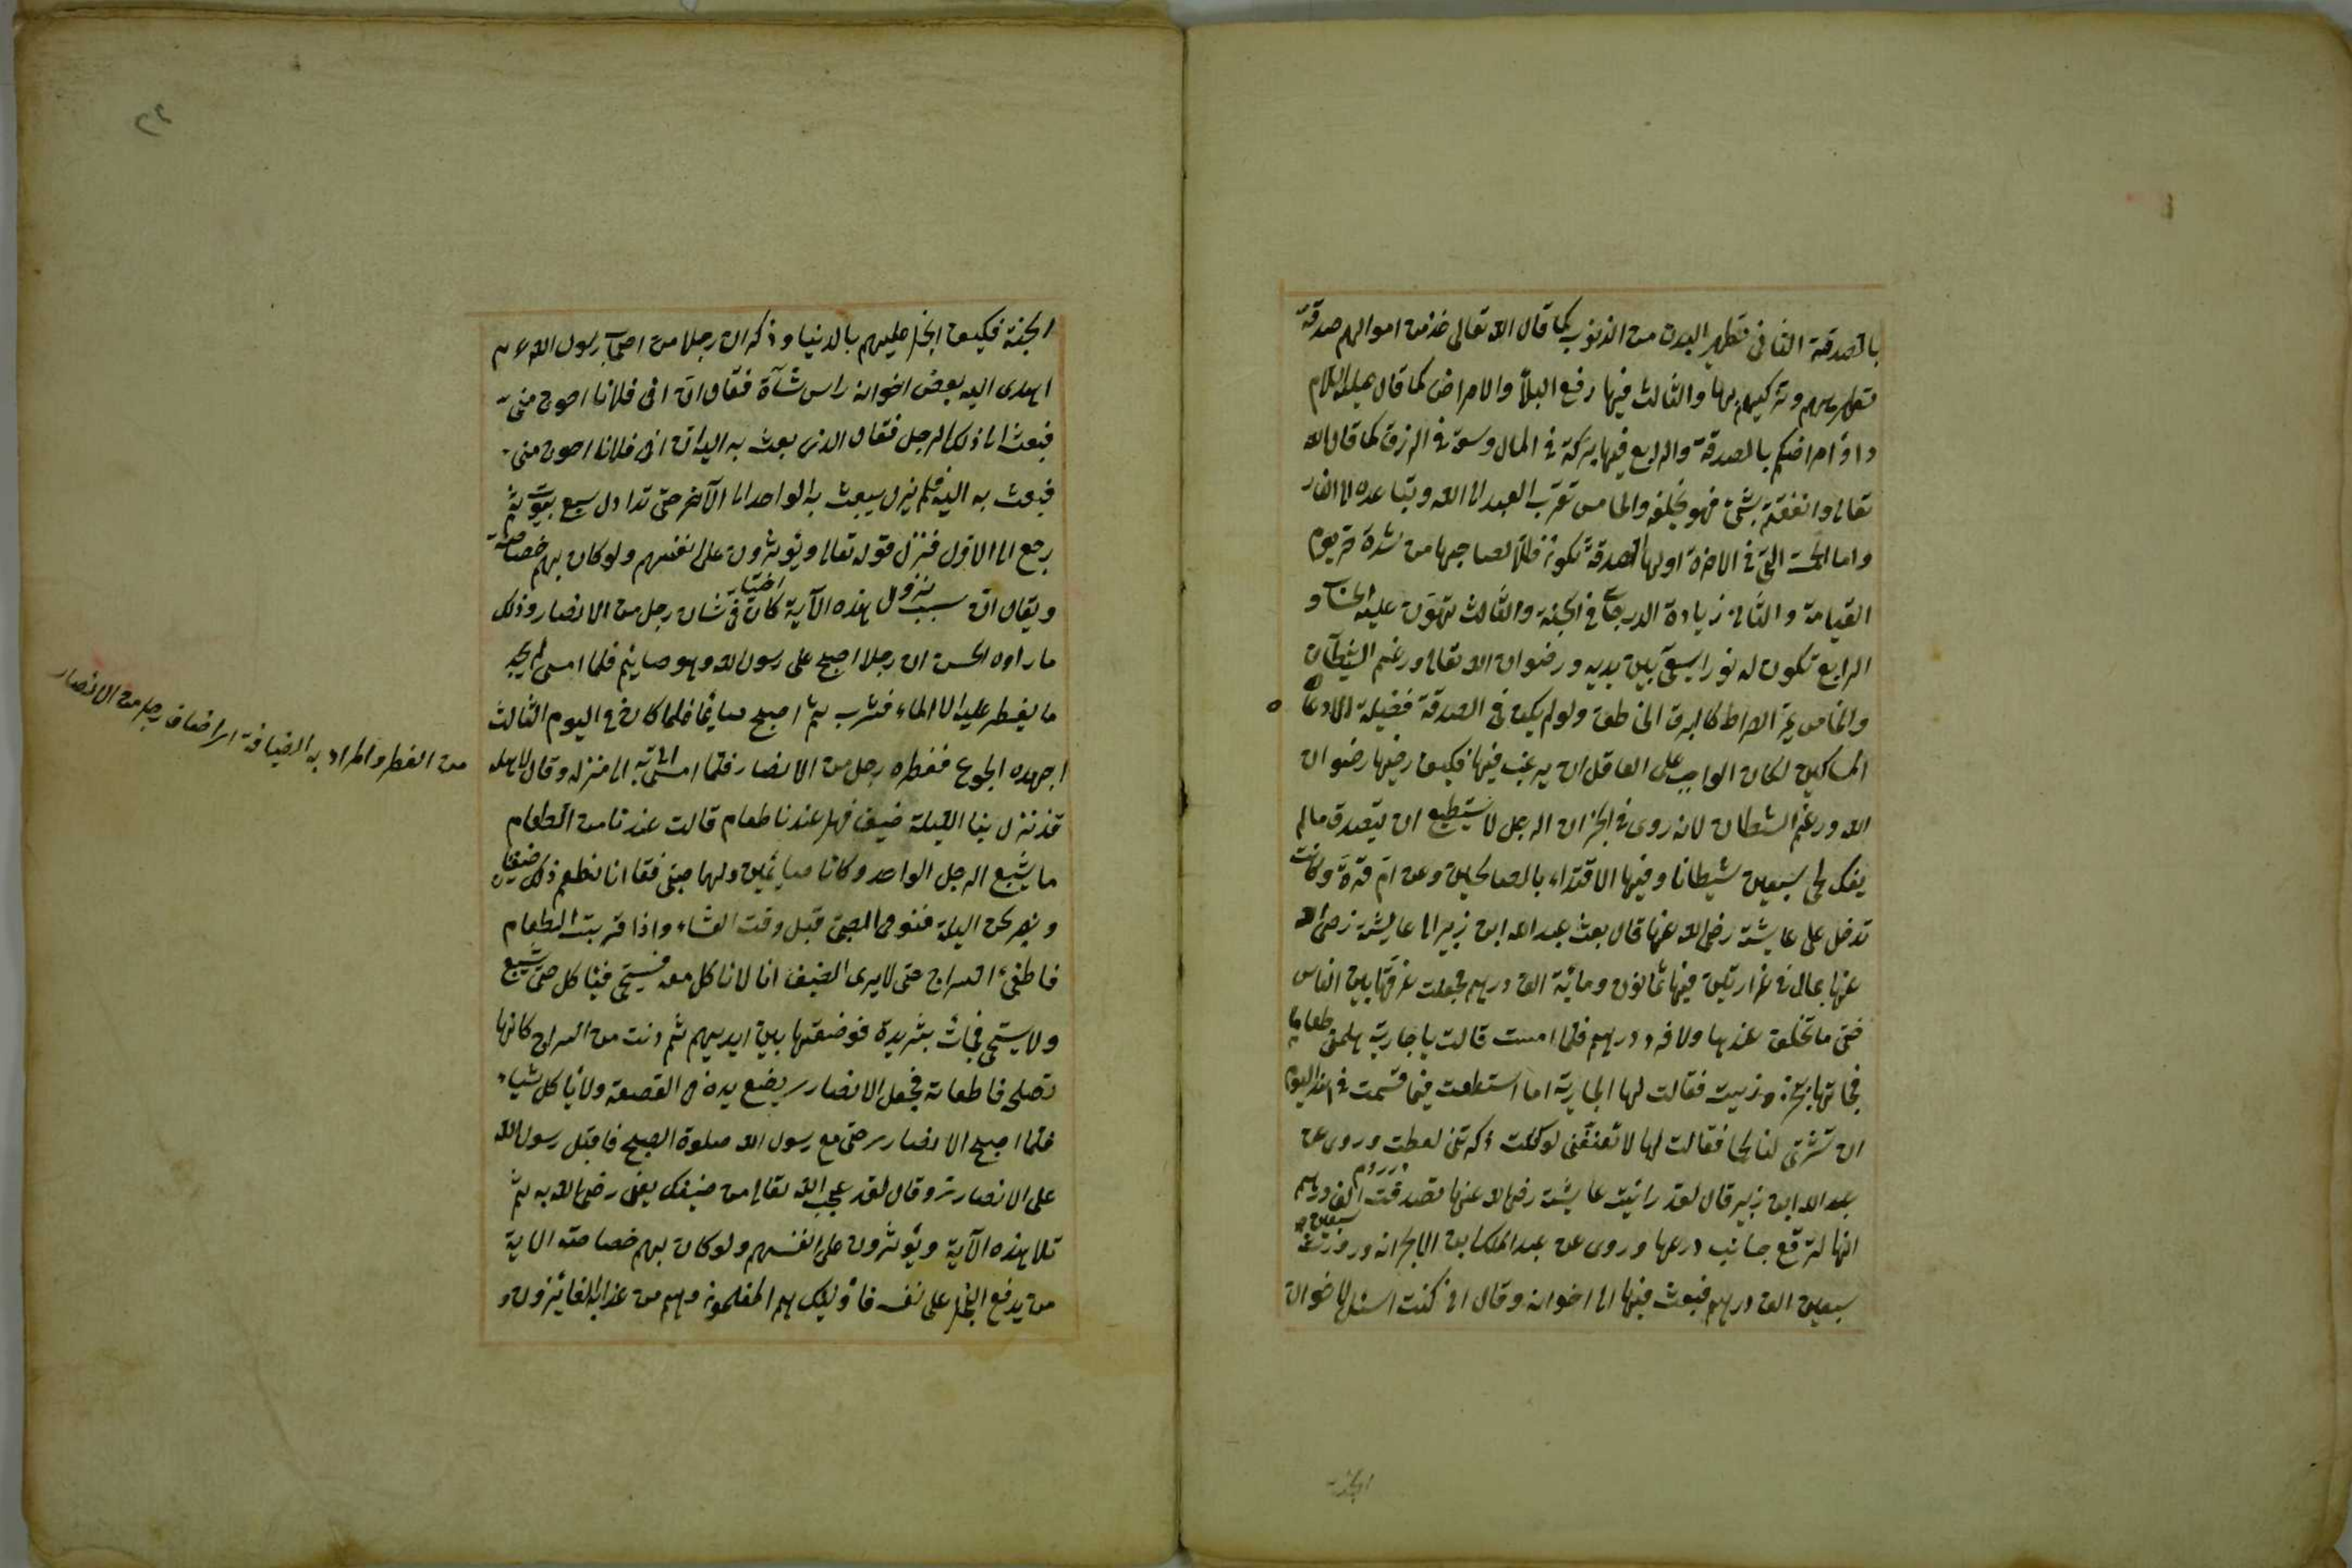 بالصدقة الثانى تطهير البدن من الذنوب كما قال الله تعالى خذ من اموالهم صدقة
تطهرهم وتزكيهم بها والثالث فيها رفع البلاء والامراض كما قال عليه السلام
داووا امراضكم بالصدقة والرابع فيها بركة فى المال وسعة فى الرزق كما قال الله
تعالى وما انفقتم بشئ فهو يخلفه والخامس تقرب العبد الى الله وتباعده من النار
واما الخمسة التى فى الاخرة اولها الصدقة تكون ظلا لصاحبها من شدة حر يوم
القيامة والثانى زيادة الدرجات فى الجنة والثالث تهون عليه الحساب و
الرابع تكون له نورا يسعى بين يديه ورضوان الله تعالى ورغم الشيطان
والخامس يمر الصراط كالبرق الخاطف ولو لم يكن فى الصدقة فضيلة الا دعاء
المساكين لكان الواجب على العاقل ان يرغب فيها فكيف وفيها رضوان
الله ورغم الشيطان لانه روى فى الخبر ان الرجل لا يستطيع ان يتصدق مالم
يفك لحى سبعين شيطانا وفيها الاقتداء بالصالحين وعن ام قرة وكانت
تدخل على عايشة رضى الله عنها قال بعث عبد الله ابن زبير الى عايشة رضى الله
عنها بمال فى غرارتين فيها ثمانون ومائة الف درهم فجعلت غرفها بين الناس
حتى ما تخلف عندها ولا فرد درهم فلما امست قالت يا جارية هلمى طعاما
فجاءتها بخبز وزيت فقالت لها الجارية اما استطعت فيما قسمت فى هذا اليوم
ان تشترى لنا لحما فقالت لها لا تعنفنى لو كنت ذكرتنى لفعلت وروى عن
عبد الله ابن زبير قال لقد رائيت عايشة رضى الله عنها تصدقت الف درهم
انها لترقع جانب درعها وروى عن عبد الملك ابن الابجر انه ورث
سبعين الف درهم فبعث فيها الى اخوانه وقال انى كنت اسئل لاخوانى
الجنة
الجنة فكيف ابخل عليهم بالدنيا وذكر ان رجلا من اصحاب رسول الله ع م
اهدى اليه بعض اخوانه راس شآة فقال ان اخى فلانا احوج منى
فبعث الى ذلك الرجل فقال الذى بعث به اليه ان اخى فلانا احوج منى
فبعث به اليه فلم يزل يبعث به الواحد الى الآخر حتى تداول سبع بيوت ثم
رجع الى الاول فنزل قوله تعالى ويؤثرون على انفسهم ولو كان بهم خصاصة
ويقال ان سبب نزول هذه الآية كان فى شان رجل من الانصار وذلك
اختيار
ما رواه الحسن ان رجلا اصبح على رسول الله وهو صايم فلما امسى لم يجد
ما يفطر عليه الا الماء فشرب ثم اصبح صايما فلما كان فى اليوم الثالث
اجهده الجوع ففطره رجل من الانصار فلما امسى اتى به الى منزله وقال لاهله
قد نزل بنا الليلة ضيف فهل عندنا طعام قالت عندنا من الطعام
ما يشبع الرجل الواحد وكانا صايمين ولهما صبى فقال انا نطعم ذلك ضيفنا
ونصبر نحن الليلة فنومى الصبى قبل وقت العشاء واذا قربت الطعام
فاطفئ السراج حتى لا يرى الضيف انا لا ناكل معه فيستحى فياكل حتى يشبع
ولا يستحى فجاءت بثريدة فوضعتها بين ايديهم ثم دنت من السراج كانها
تصلح فاطفاته فجعل الانصارى يضع يده فى القصعة ولا ياكل شيئا
فلما اصبح الانصارى صلى مع رسول الله صلوة الصبح فاقبل رسول الله
على الانصارى وقال لقد عجب الله تعالى من ضيفك يعنى رضى الله به ثم
تلا هذه الآية ويؤثرون على انفسهم ولو كان بهم خصاصة الاية
من يدفع البخل على نفسه فاولئك هم المفلحون وهم من عذاب الله الفايزون و
من الفطر والمراد به الضيافة اى اضاف رجل من الانصار
٢٢